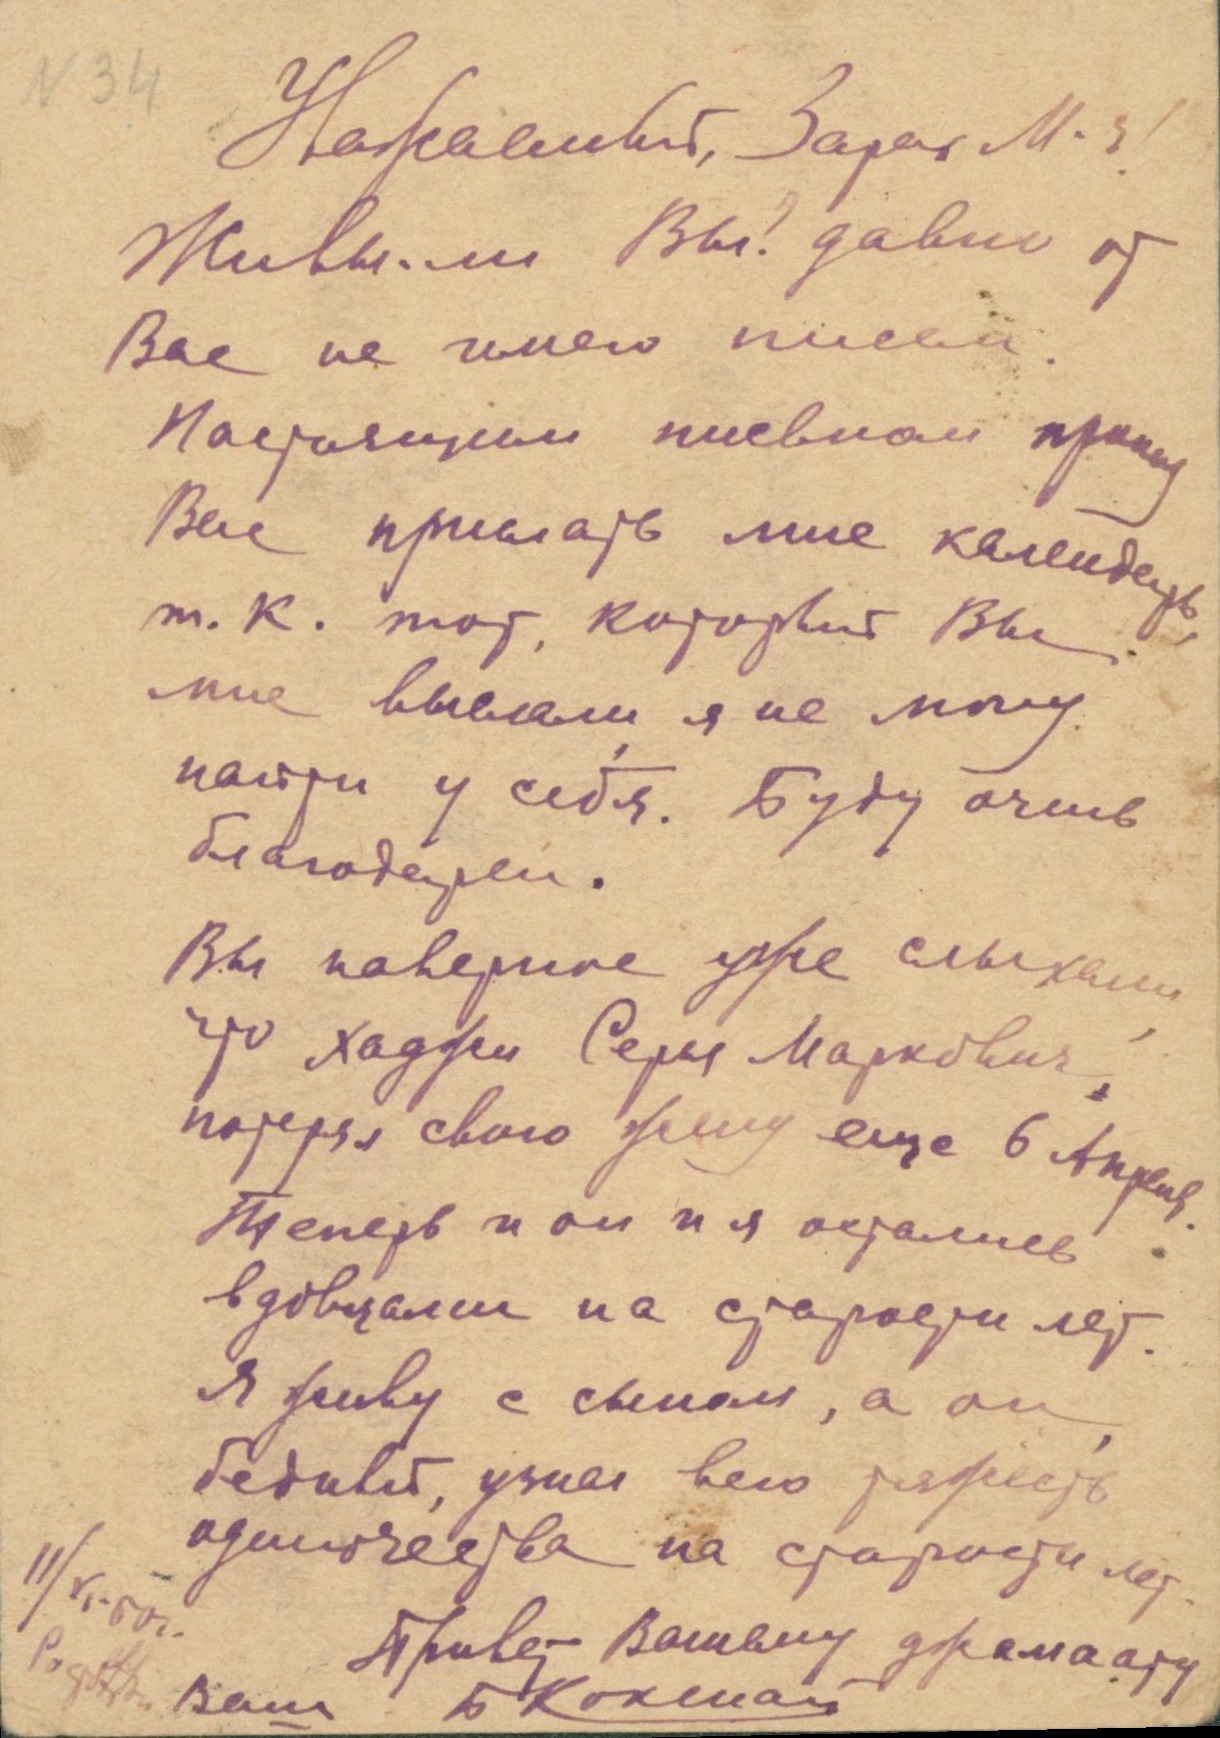 N 34
Уважаемый, Зарах М-ч!
Живы-ли Вы? давно от
Вас не имею писем.
Настоящим письмом прошу
Вас прислать мне календарь,
т.к. тот, который Вы
мне выслали, я не могу
найти у себя. Буду очень
благодарен.
Вы наверное уже слыхали,
что Хаджи Серая Маркович,
потерял свою жену еще 6 Апреля.
Теперь и он и я остались
вдовцами на старости лет.
Я живу с сыном, а он,
бедный, узнал всю тяжесть
одиночества на старости лет.
11/VI-60г.
Привет Вашему джамаату
Ваш Б Кокенай